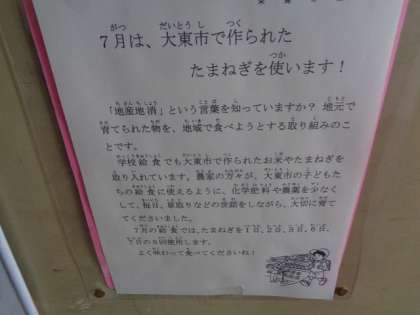 7月は、大東市で作られた
たまねぎを使います！
「地産地消」という言葉を知っていますか？ 地元で
育てられた物を、地域で食べようとする取り組みのこ
とです。
学校給食でも大東市で作られたお米やたまねぎを
取り入れています。農家の方々が、大東市の子どもた
ちの給食に使えるように、化学肥料や農薬を少なく
して、毎日、草取りなどの世話をしながら、大切に育て
てくださいました。
7月の給食では、たまねぎを1日、2日、3日、6日、
7日の5回使用します。
よく味わって食べてくださいね！